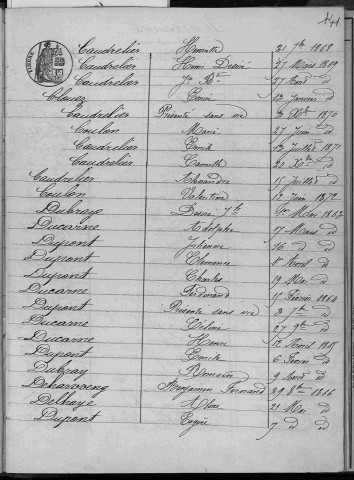 141
Caudrelier Henriette 21 7bre 1868
Caudrelier Henri Désiré 27 Mars 1869
Caudrelier Jn Bte 27 Août d
Clouez 12 Janvier d
Caudrelier Présenté sans vie 2 Xbre 1870
Coulon Marie 27 Juin d
Caudrelier Emile 12 Juillet 1871
Caudrelier Camille 20 Xbre d
Caudrelier Alexandre 15 Juillet d
Coulon Valentine 12 Juin 1872
Dubray Désiré Jh 1er Mai 1863
Ducarne Adolphe 17 Mars d
Dupont Julienne 16 d d
Dupont Clémence 8 Avril d
Dupont Charles 19 Mai d
Ducarne Ferdinand 15 Février 1864
Dupont Présenté sans vie 2 d
Ducarne 27 9bre d
Ducarne Henri 12 Avril 1865
Dupont Emile 6 Février d
Dubray Romain 9 Août d
Deharveng Benjamin Fernand 29 8bre 1866
Delhaye Aline 21 Mai d
Dupont 7 d d